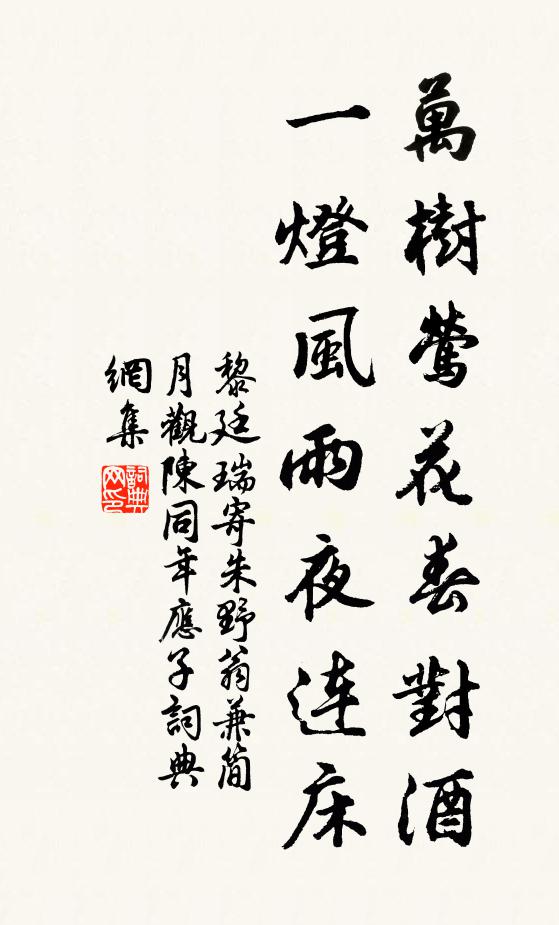 萬樹鶯花春對酒
一燈風雨夜连床
黎廷瑞寄朱野翁兼简
月觀陳同年應子詞典
網集
詞典网印